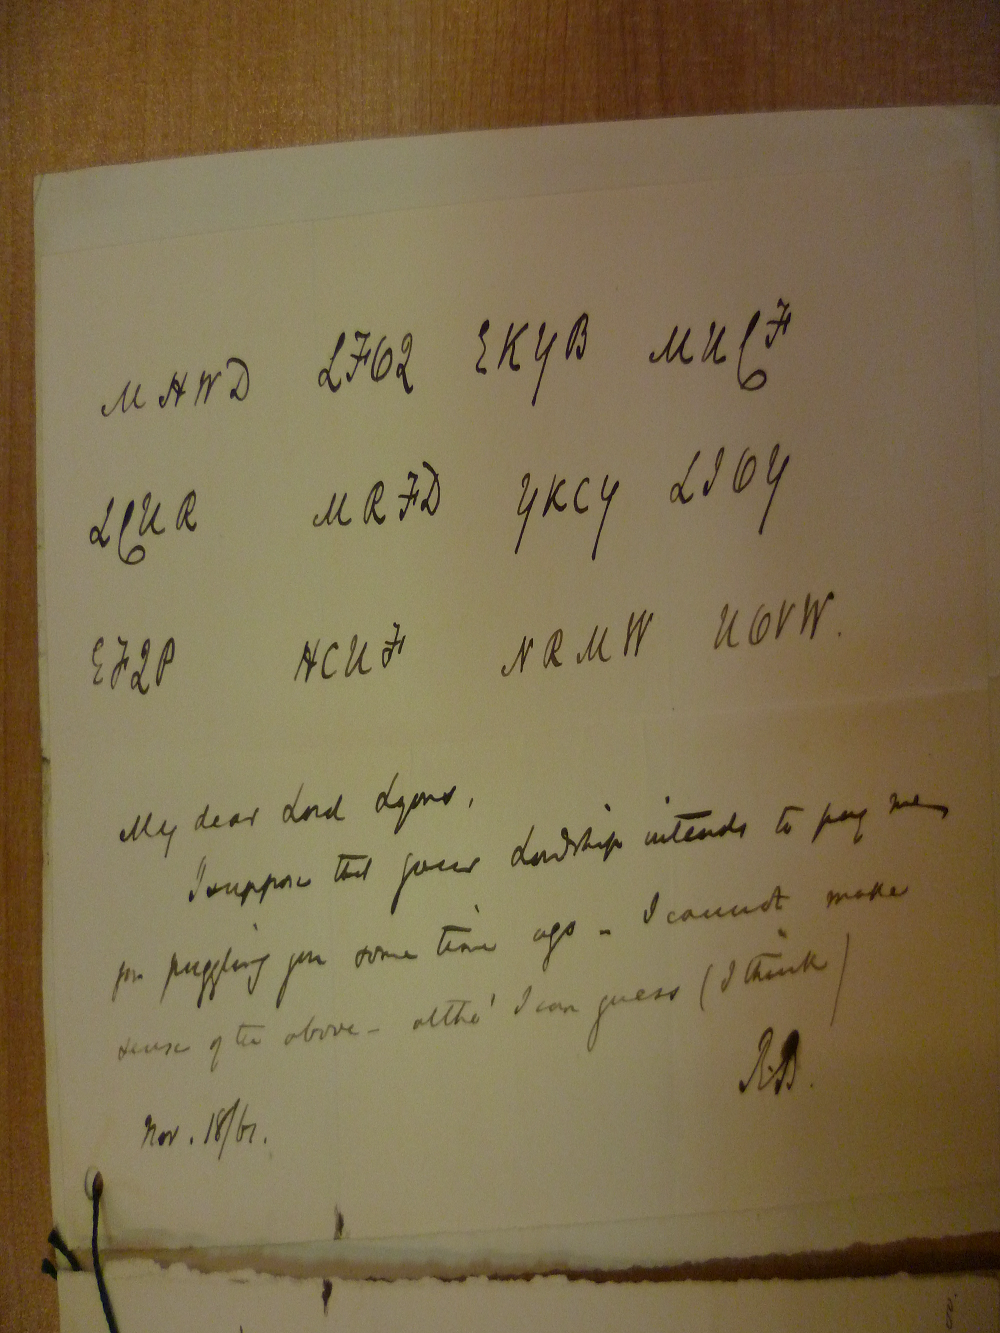 MHWD LFOQ EKYB MUCF
LCUR MRFD YKCY LIOY
EFQP HCUF NRMW UOVW.
My dear Lord Lyons,
I suppose that your Lordship intends to pay me
for puzzling you some time ago - I cannot make
sense of the above - altho' I can guess (I think)
R.B.
Nov. 18/61.